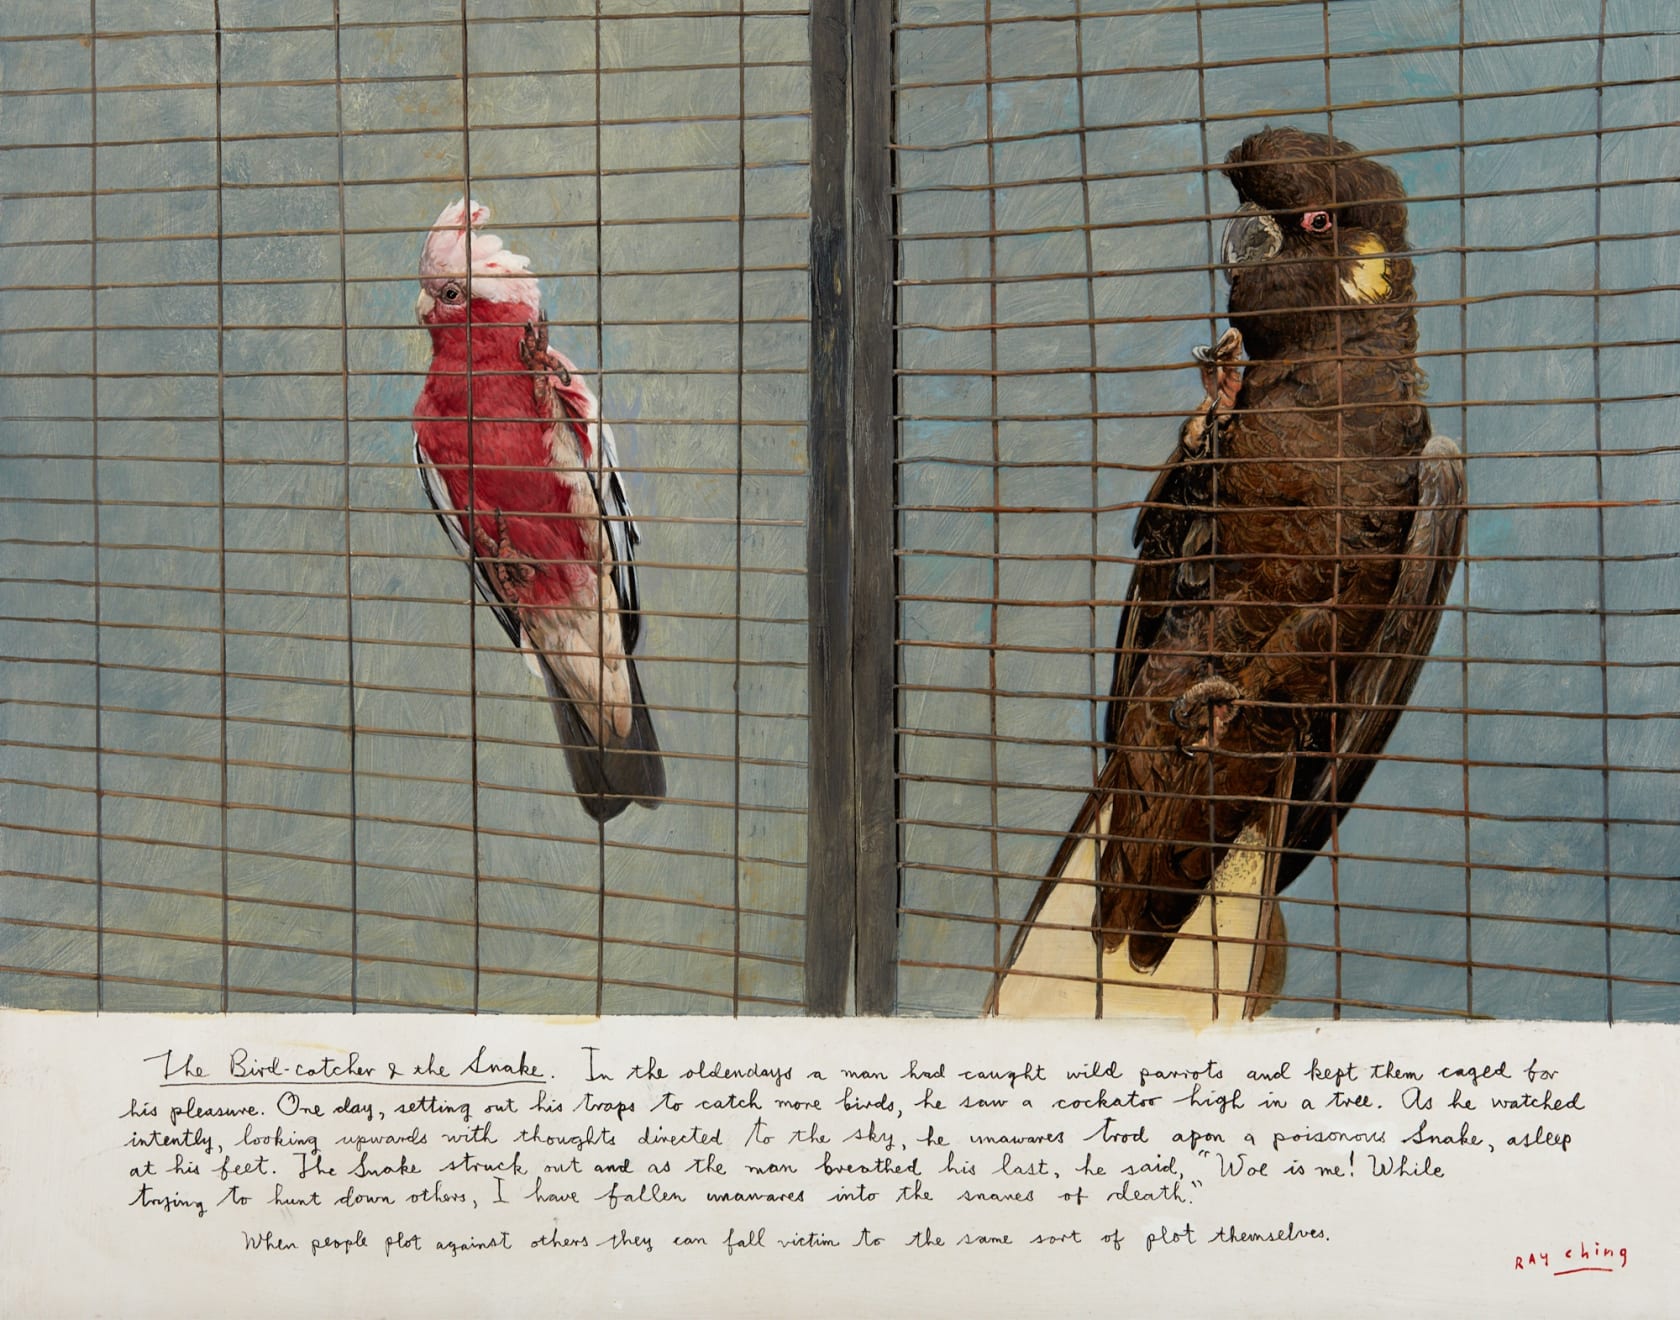 The Bird-catcher & the Snake. In the oldendays a man had caught wild parrots and kept them caged for
his pleasure. One day, setting out his traps to catch more birds, he saw a cockatoo high in a tree. As he watched
intently, looking upwards with thoughts directed to the sky, he unawares trod apon a poisonous Snake, asleep
at his feet. The Snake struck out and as the man breathed his last, he said, "Woe is me! While
trying to hunt down others, I have fallen unawares into the snares of death."
When people plot against others they can fall victim to the same sort of plot themselves.
RAY ching